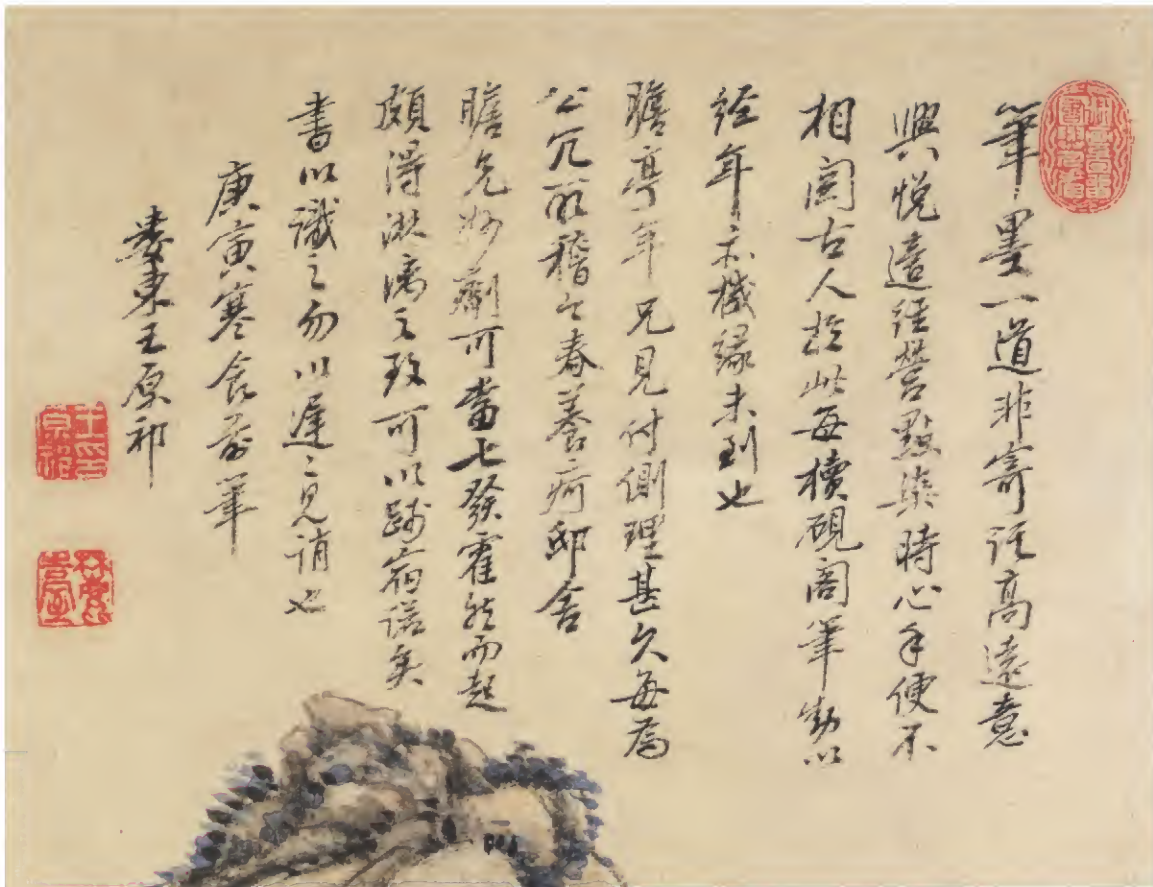 筆墨一道非寄託高遠意
興悅適經營點染時心手便不
相關古人於此每櫝硯閣筆動以
經年亦機緣未到也
瞻亭年兄見付側理甚久每為
公冗所稽今春養疴邸舍
瞻兄妙劑可當七發霍然而起
頗得淋漓之致可以踐宿諾矣
書以識之勿以遲遲見誚也
庚寅寒食前筆
婁東王原祁
王原祁印
麓臺